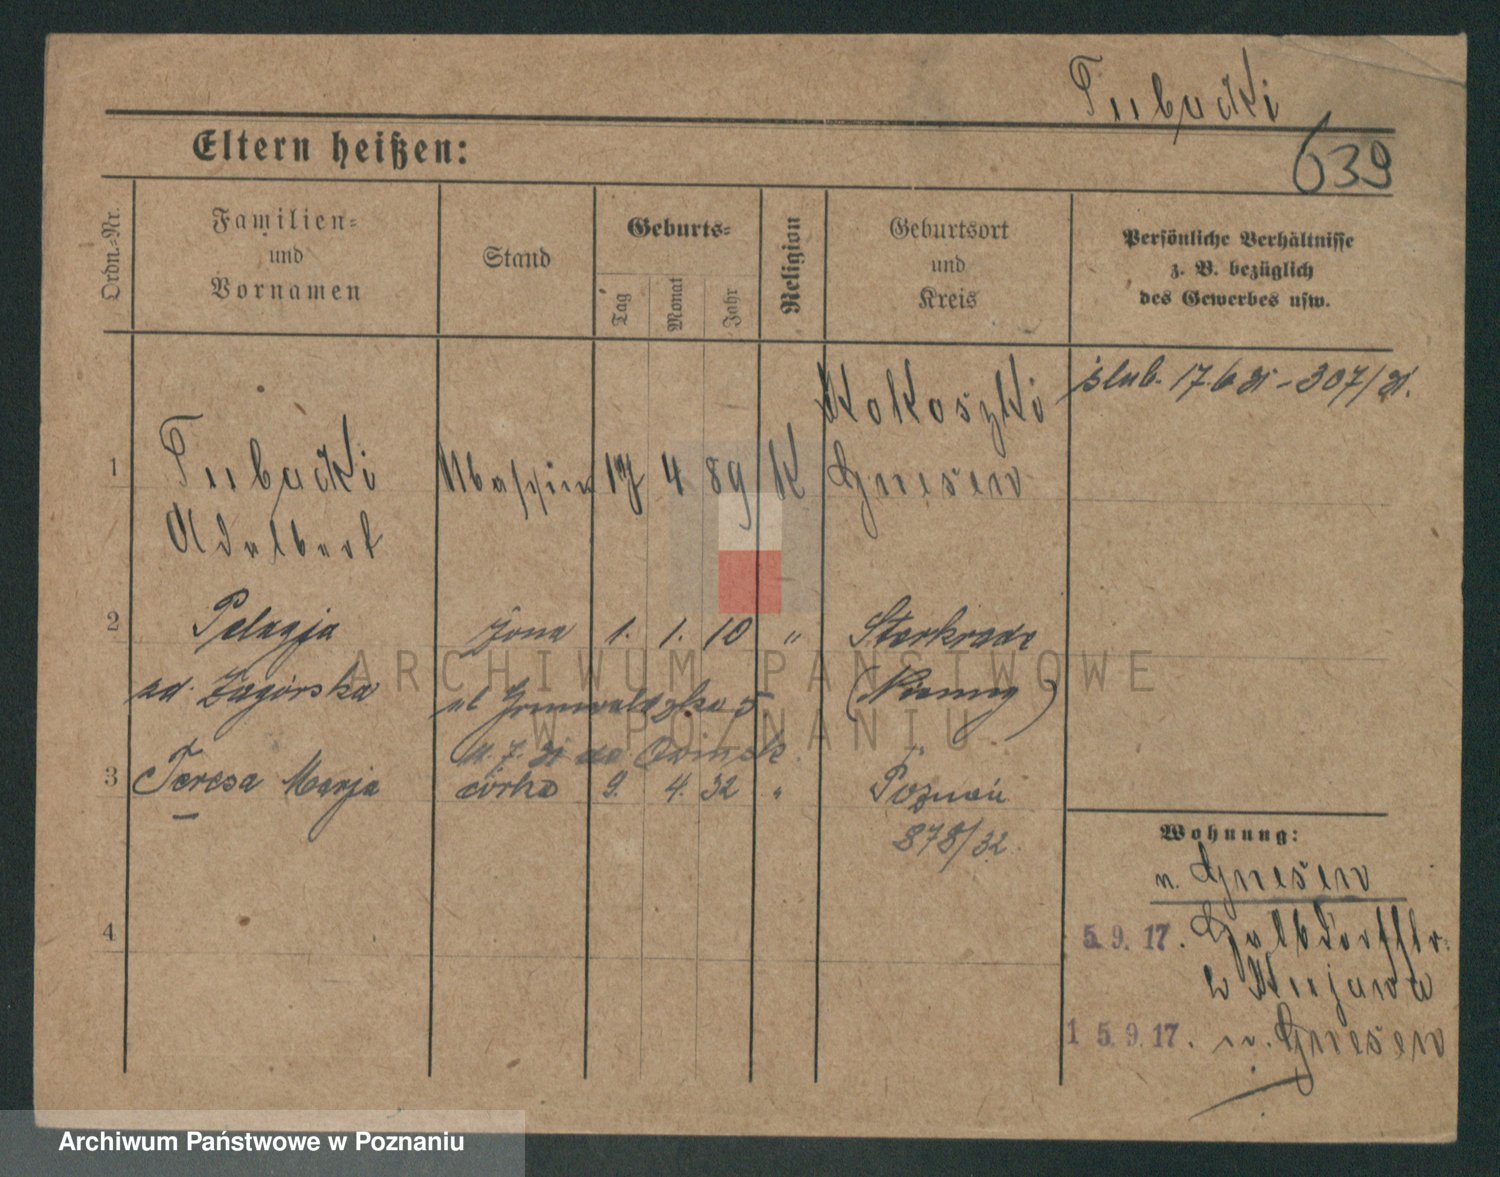 Tubacki
639
Eltern heißen:
Ordn.=Nr.
Familien=
und
Vornamen
Stand
Geburts=
Tag
Monat
Jahr
Religion
Geburtsort
und
Kreis
Persönliche Verhältnisse
z. B. bezüglich
des Gewerbes usw.
1
Tubacki
Adalbert
17 4 89 K
Kokoszki
Gnesen
ślub. 17.6 31 - 307/31.
2
Pelagja
żona 1. 1. 10 "
Sterkrade
zd. Zagórska
ul Grunwaldzka 5
(Niemcy)
3
Teresa Marja
córka 9. 4. 32 "
Poznań
878/32.
4
Wohnung:
n. Gnesen
5. 9. 17.
b Kujawa
1 5. 9. 17. n. Gnesen
ARCHIWUM PAŃSTWOWE
W POZNANIU
Archiwum Państwowe w Poznaniu